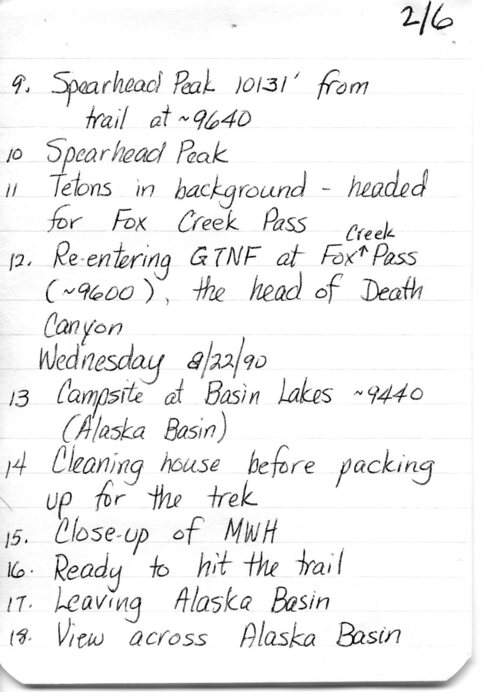 2/6
9. Spearhead Peak 10131' from
trail at ~9640
10 Spearhead Peak
11 Tetons in background - headed
for Fox Creek Pass
12. Re-entering GTNF at Fox ↑ Creek Pass
(~9600), the head of Death
Canyon
Wednesday 8/22/90
13 Campsite at Basin Lakes ~9440
(Alaska Basin)
14 Cleaning house before packing
up for the trek
15. Close-up of MWH
16. Ready to hit the trail
17. Leaving Alaska Basin
18. View across Alaska Basin